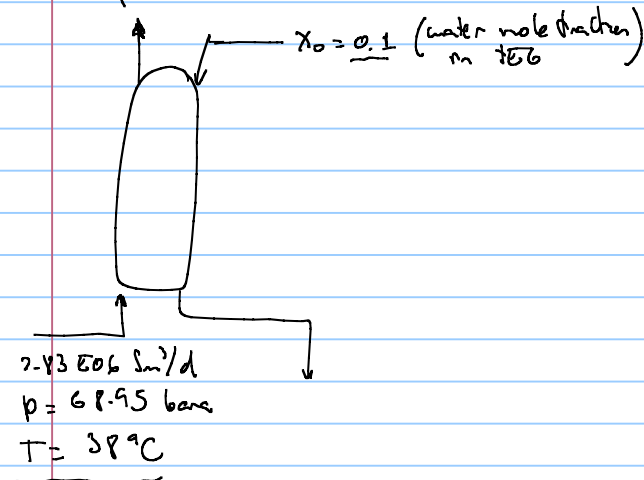 x₀ = 0.1 (water mole fraction
in TEG)
2.83 E06 Sm³/d
p = 68.95 bara
T = 38 °C